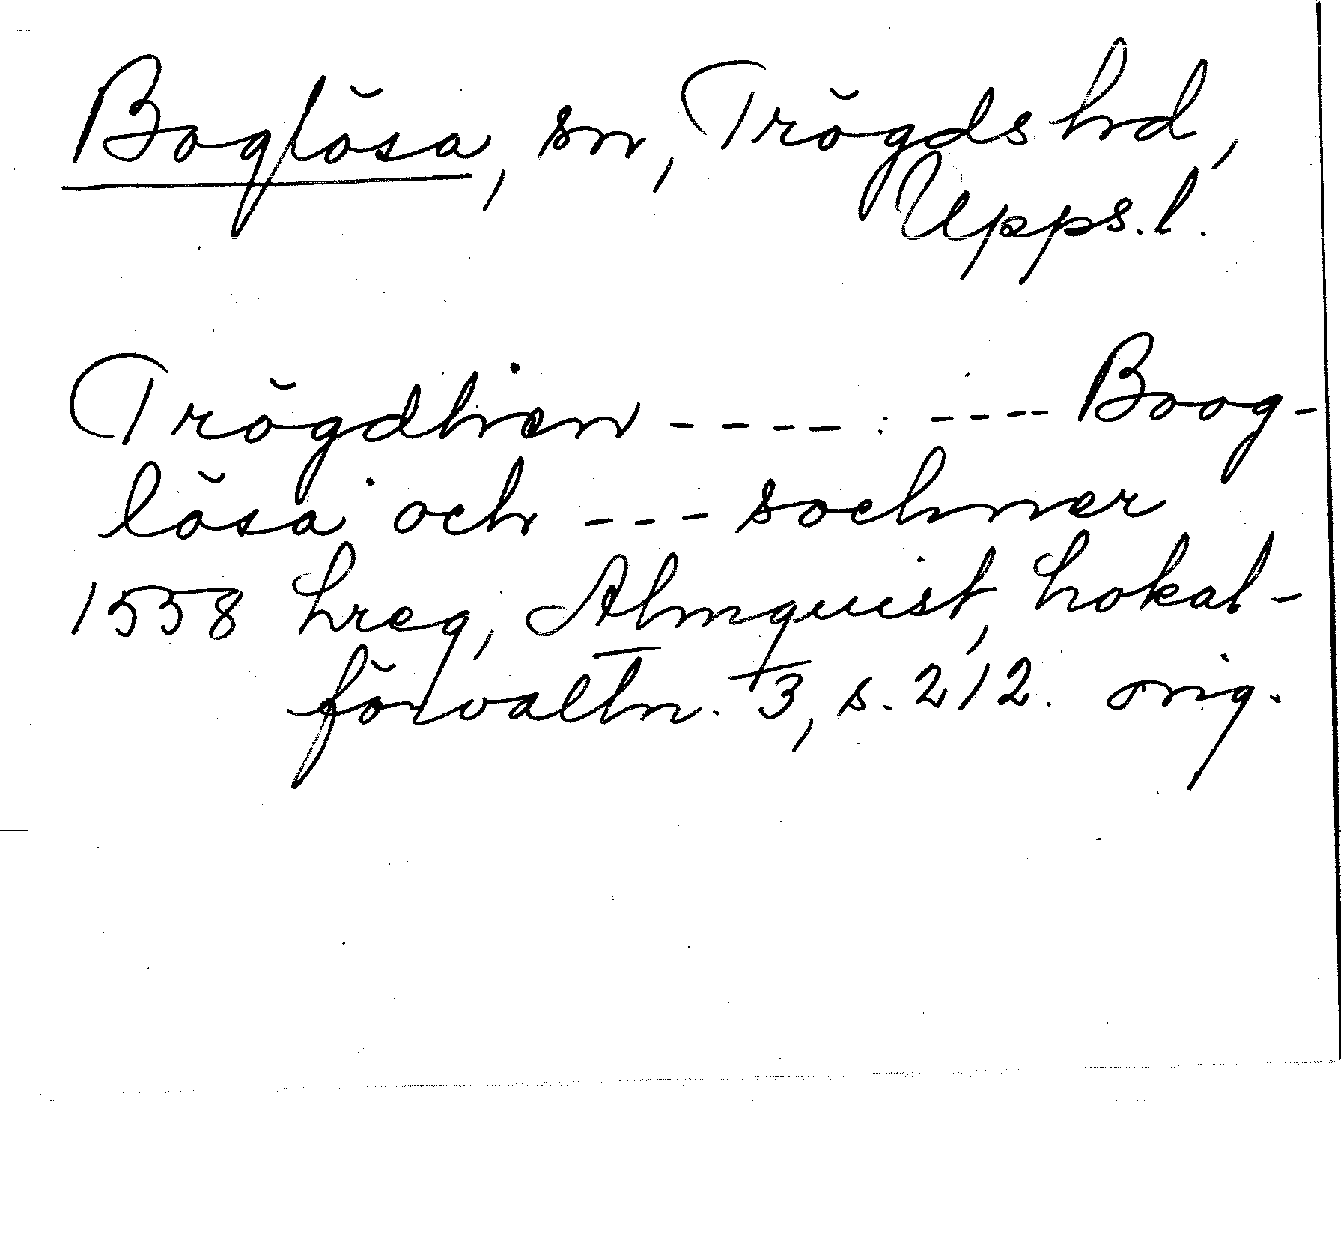 Boglösa, sn, Trögds hd,
Upps.l.
Trögdhen ---- . ---- Boog-
lösa och --- sochner
1558 hreg, Almquist, Lokal-
förvaltn. 3, s. 212. orig.